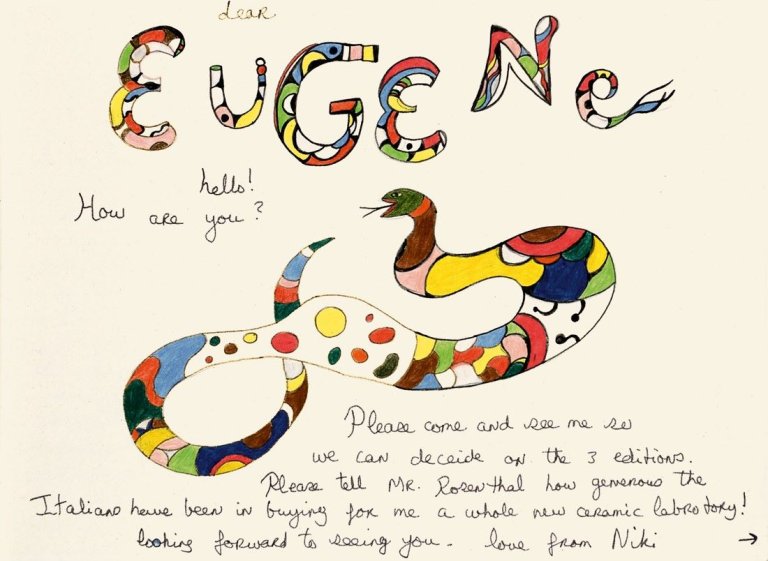 dear
EUGENE
hello!
How are you?
Please come and see me so
we can deceide on the 3 editions.
Please tell MR. Rosenthal how generous the
Italians have been in buying for me a whole new ceramic labrotory!
looking forward to seeing you. love from Niki
→